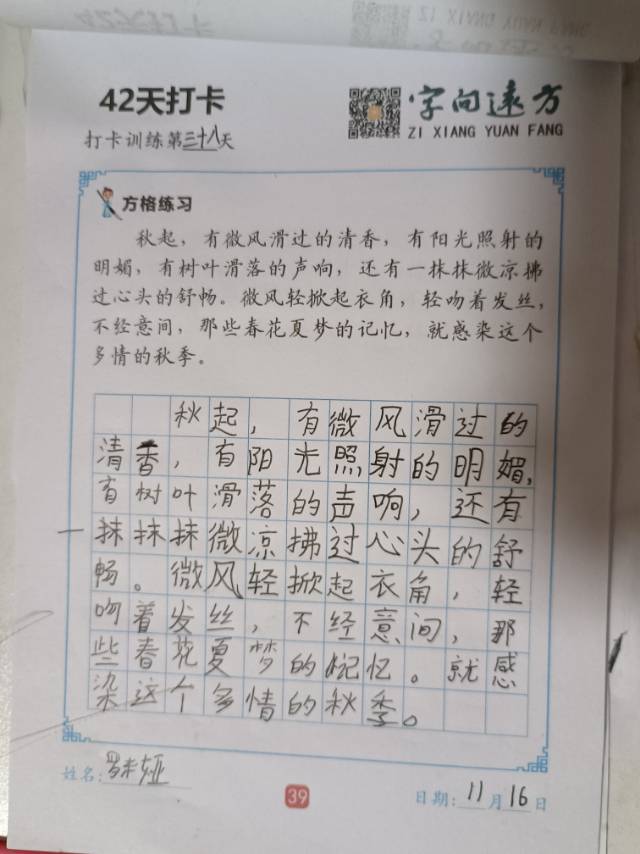 42天打卡
字向远方
ZI XIANG YUAN FANG
打卡训练第三十八天
方格练习
秋起，有微风滑过的清香，有阳光照射的
明媚，有树叶滑落的声响，还有一抹抹微凉拂
过心头的舒畅。微风轻掀起衣角，轻吻着发丝，
不经意间，那些春花夏梦的记忆，就感染这个
多情的秋季。
秋起，有微风滑过的
清香，有阳光照射的明媚，
有树叶滑落的声响，还有
一抹抹抹微凉拂过心头的舒
畅。微风轻掀起衣角，轻
吻着发丝，不经意间，那
些春花夏梦的记忆。就感
染这个多情的秋季。
姓名:
39
日期:11月16日